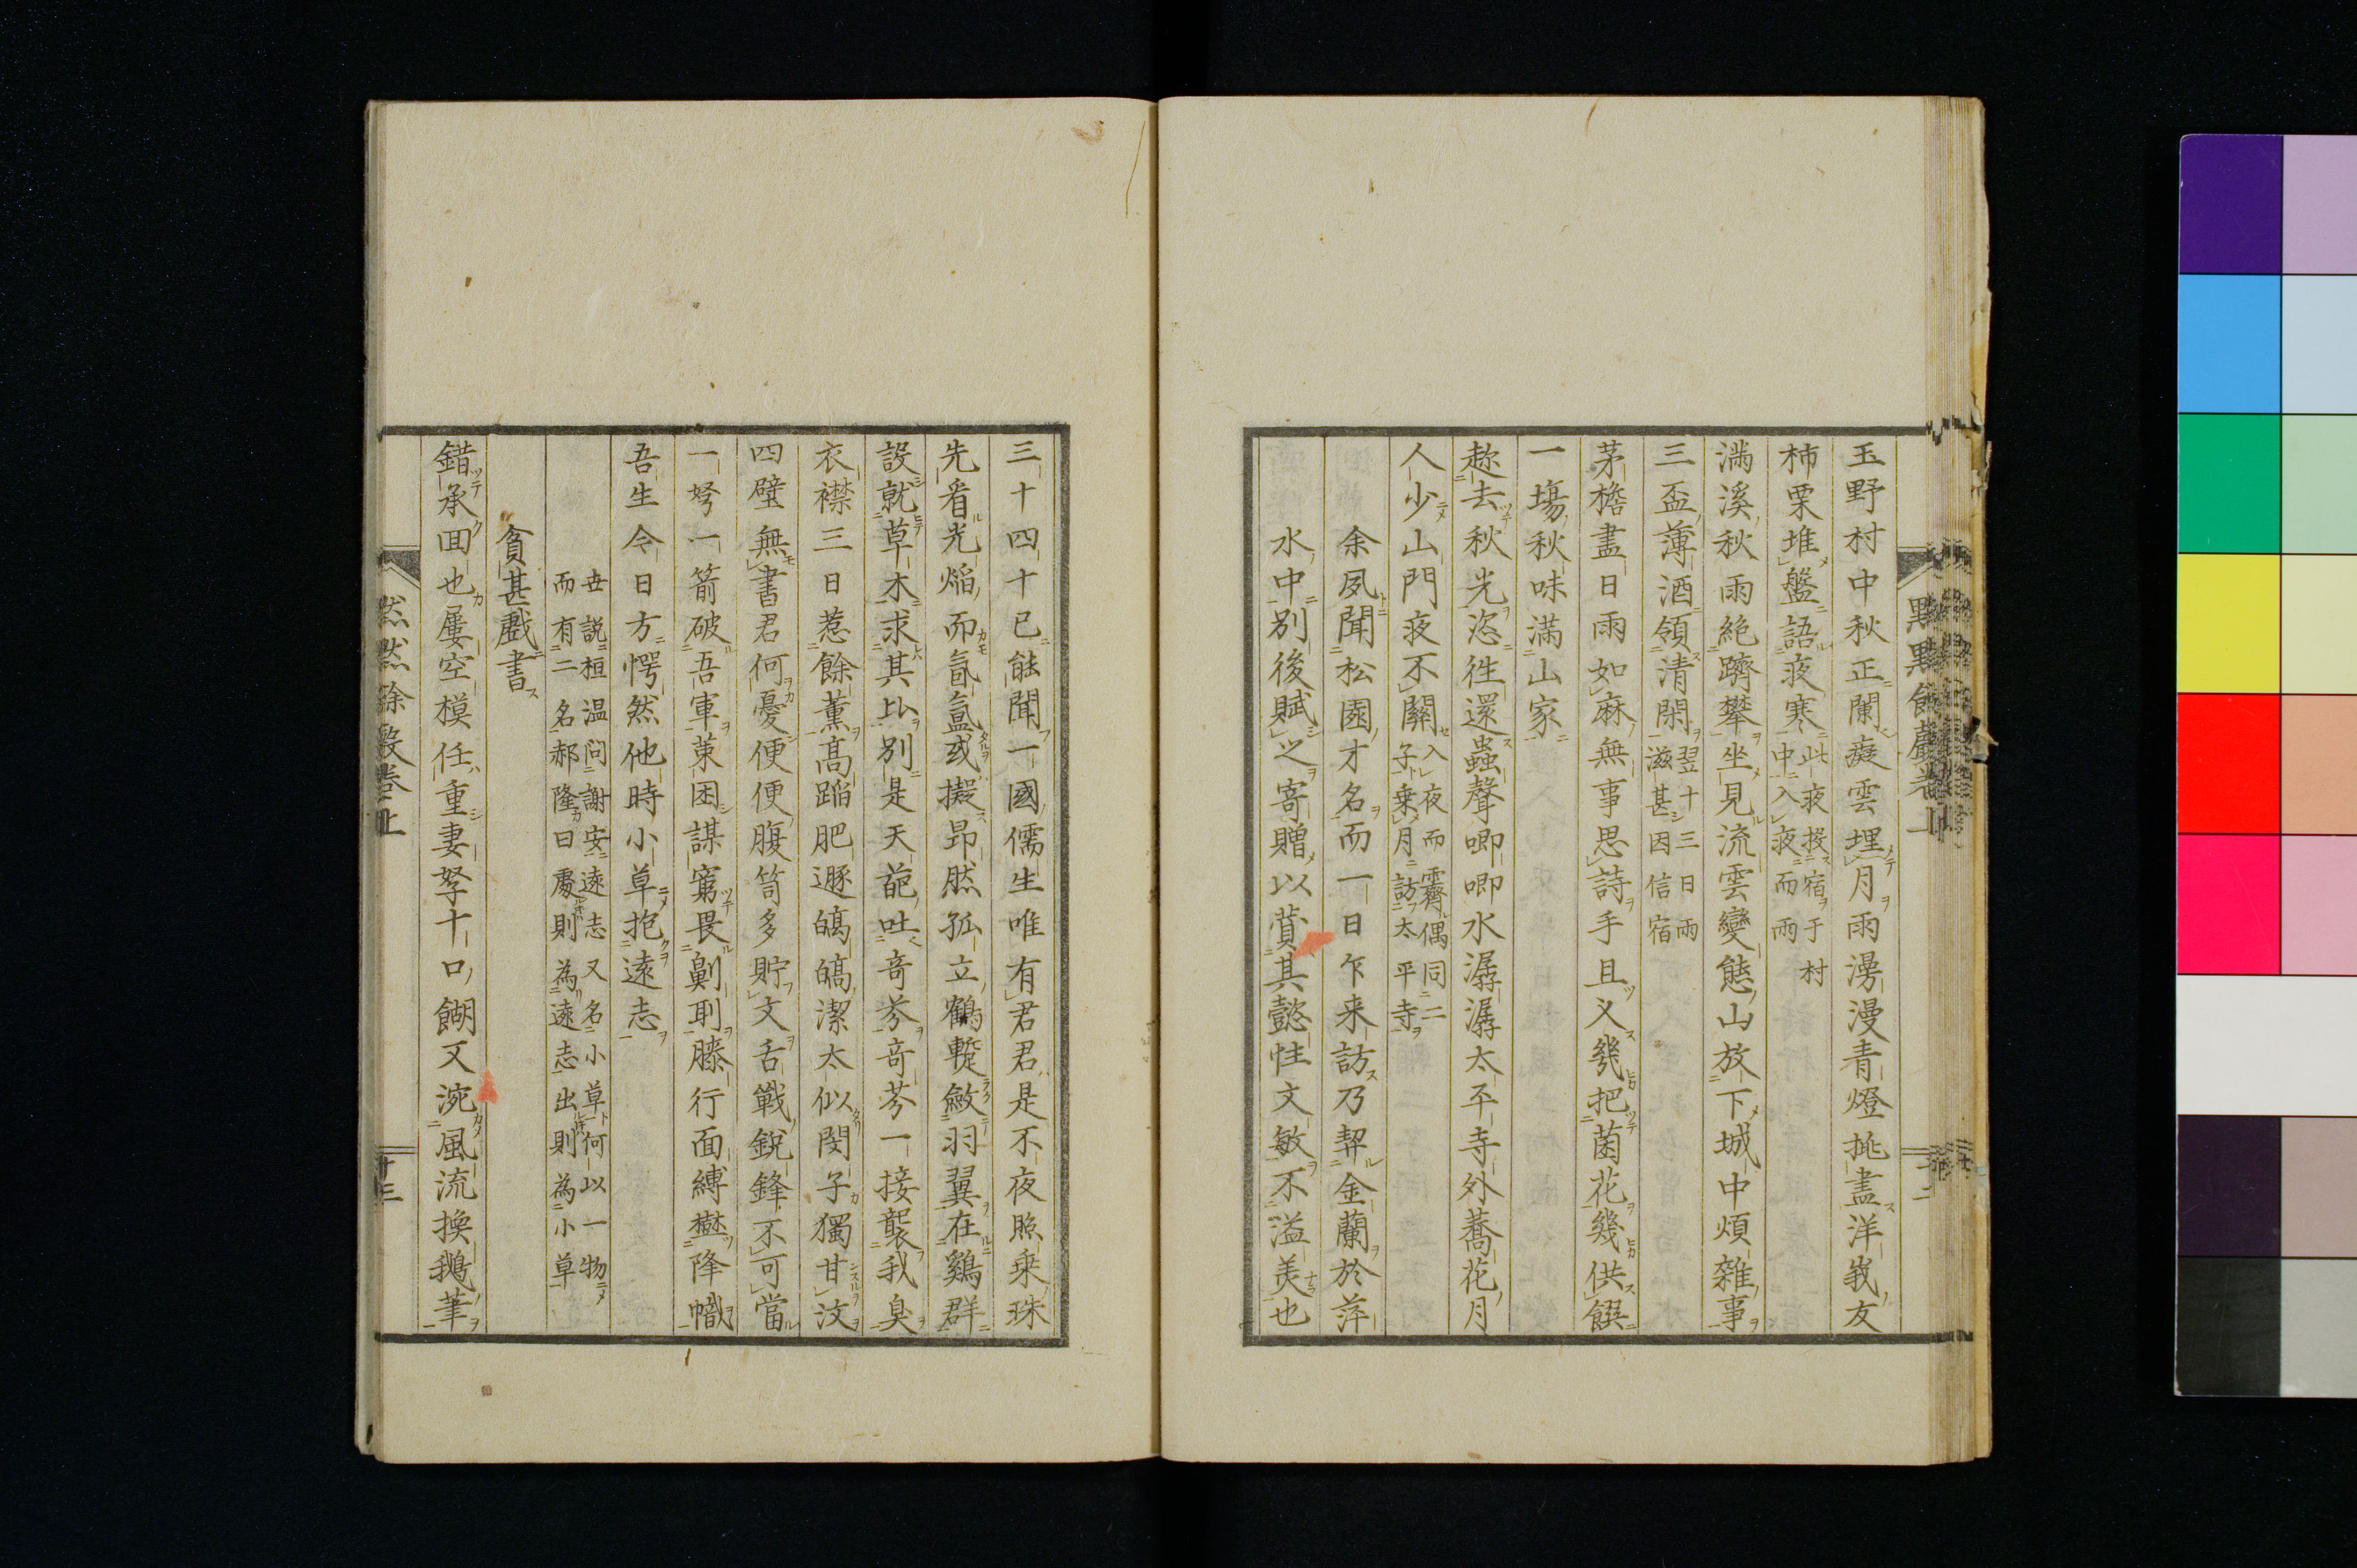 玉野村中秋正闌癡雲埋月雨湯漫青燈挑盡洋峩友
柿栗堆盤語夜寒此夜投宿于村中入夜而雨
滿溪秋雨絶躋攀坐見流雲變態山放下城中煩雜事
三盃薄酒領清閑翌十三日雨滋甚因信宿
茅檐盡日雨如麻無事思詩手且叉幾把菌花幾供饌
一塲秋味滿山家
趂去秋光恣徃還蟲聲喞喞水潺潺太平寺外蕎花月
人少山門夜不關入夜而霽偶同二子乗月訪太平寺
余夙聞松園才名而一日乍来訪乃契金蘭於萍
水中別後賦之寄贈以賞其懿性文敏不溢美也
三十四十已能聞一國儒生唯有君君是不夜照乗珠
先看光焔而氤氳或擬昻然孤立鶴蹔斂羽翼在鷄群
設就草木求其比別是天葩吐竒芬竒芬一接襲我臭
衣襟三日惹餘薫髙蹈肥遯皜皜潔太似閔子獨甘汶
四壁無書君何憂便便腹笥多貯文舌戰鋭鋒不可當
一弩一箭破吾軍菓困謀窮畏劓刵膝行面縛樹降幟
吾生令日方愕然他時小草抱遠志
世説桓温问謝安遠志又名小草何以一物
而有二名郝隆曰處則為遠志出則為小草
貧甚戲書
錯承回也屢空模任重妻孥十口餬又涴風流換鵝筆
然然餘敎卷上
十三